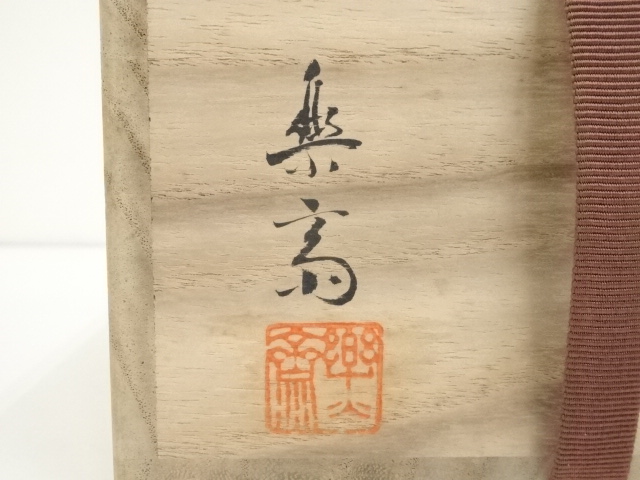 楽斎
樂斎